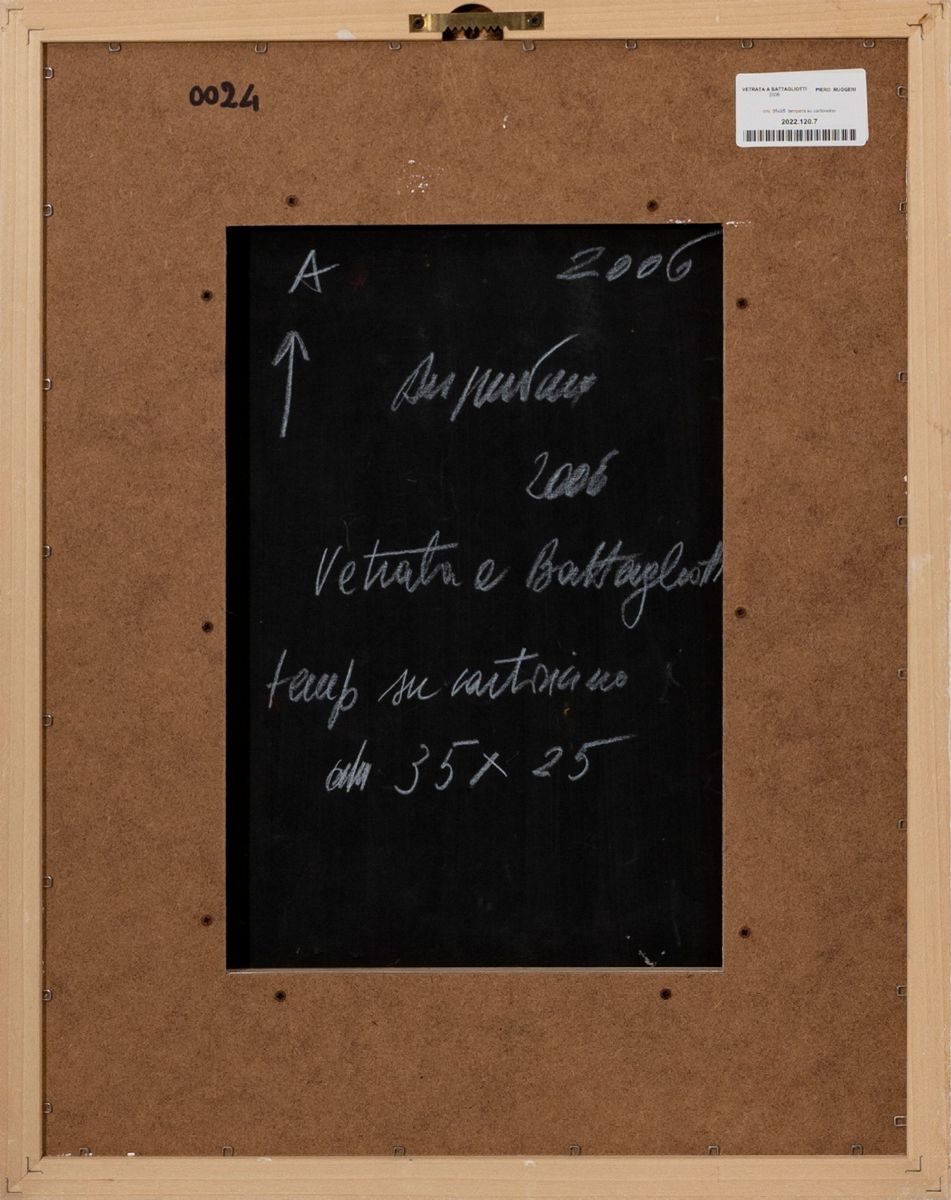 0024
VETRATA A BATTAGLIOTTI PIERO RUGGERI
2006
cm. 35x25 tempera su cartoncino
2022.120.7
A 2006
2006
Vetrata a Battagliotti
temp su cartoncino
cm 35 x 25